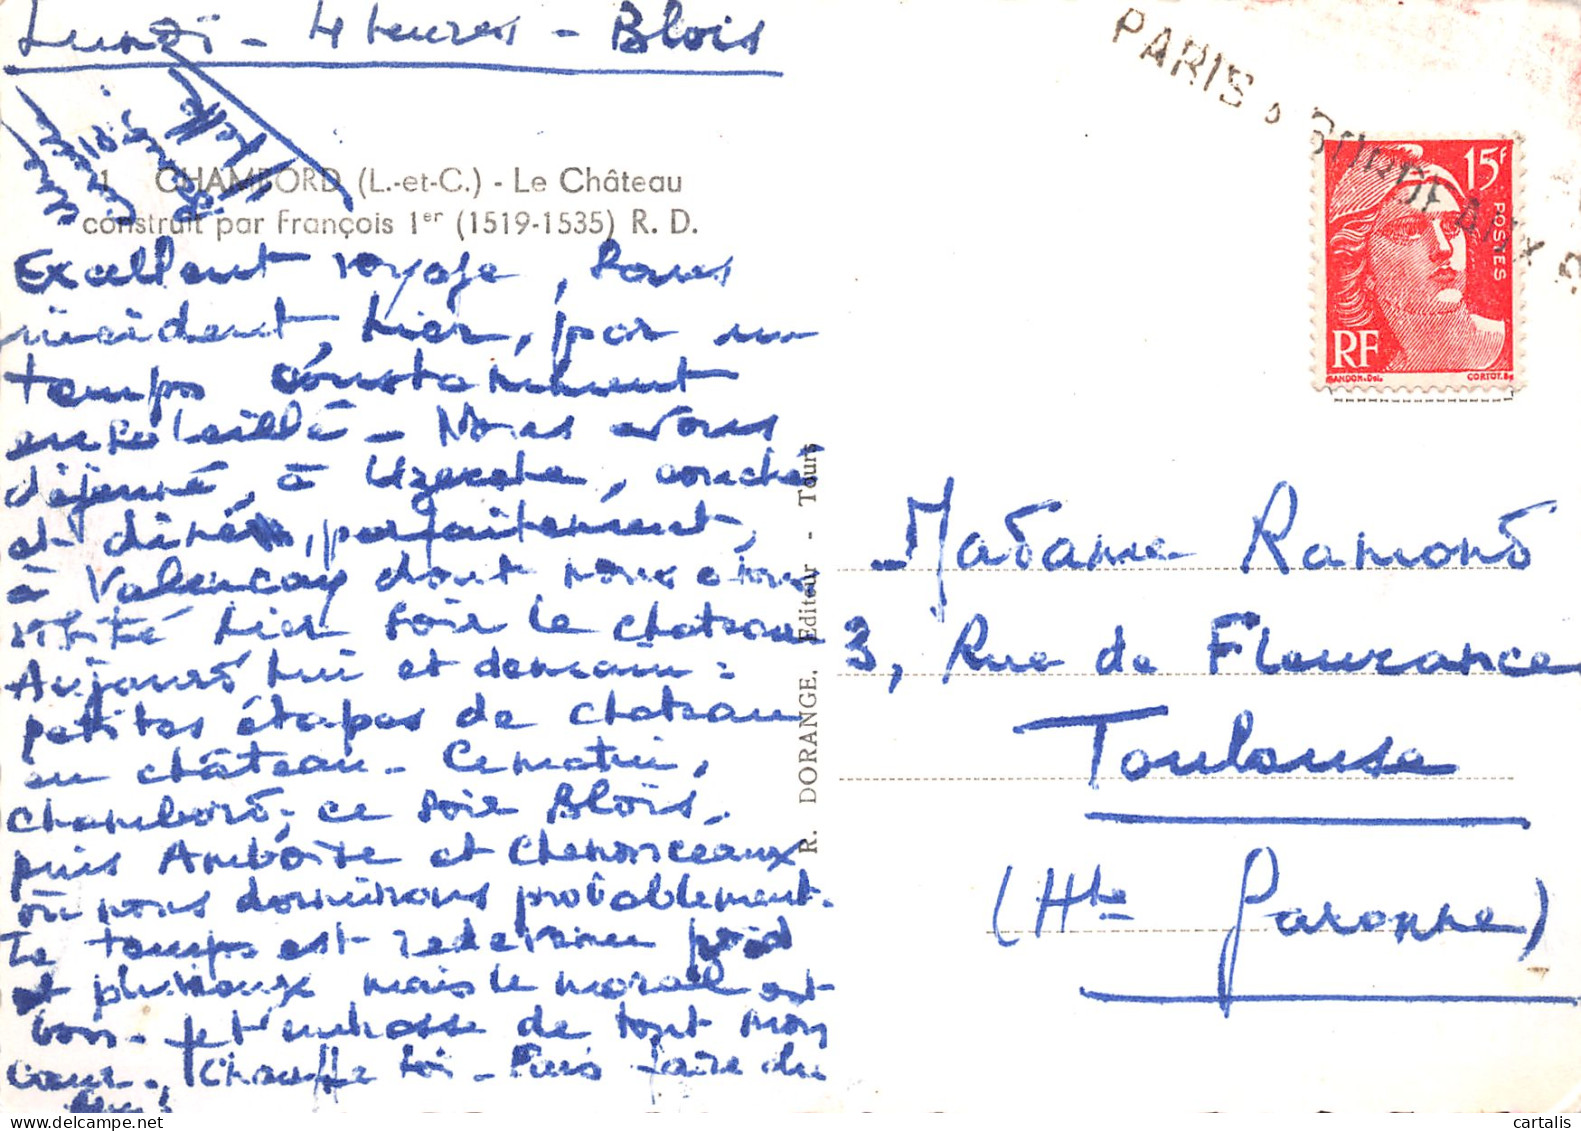 Lundi - 4 heures - Blois
1 CHAMBORD (L.-et-C.) - Le Château
construit par François 1er (1519-1535) R. D.
Excellent voyage, sans
incident, hier, par un
temps constamment
ensoleillé - Nous avons
déjeuné, à Uzerche, couché
et dîné, parfaitement,
à Valençay dont nous avons
visité hier soir le château
Aujourd'hui et demain :
petites étapes de château
en château - Ce matin,
Chambord, ce soir Blois,
puis Amboise et Chenonceaux
où nous dormirons probablement.
Le temps est redevenu froid
et pluvieux mais le moral est
bon - Je t'embrasse de tout mon
cœur - Chauffe toi - Fais faire du
feu !
R. DORANGE. Editeur - Tours
PARIS . BORDEAUX
15F
POSTES
RF
GANDON. Del.
CORTOT. Sc
Madame Ramond
3, Rue de Fleurance
Toulouse
(Hte Garonne)
cartalis